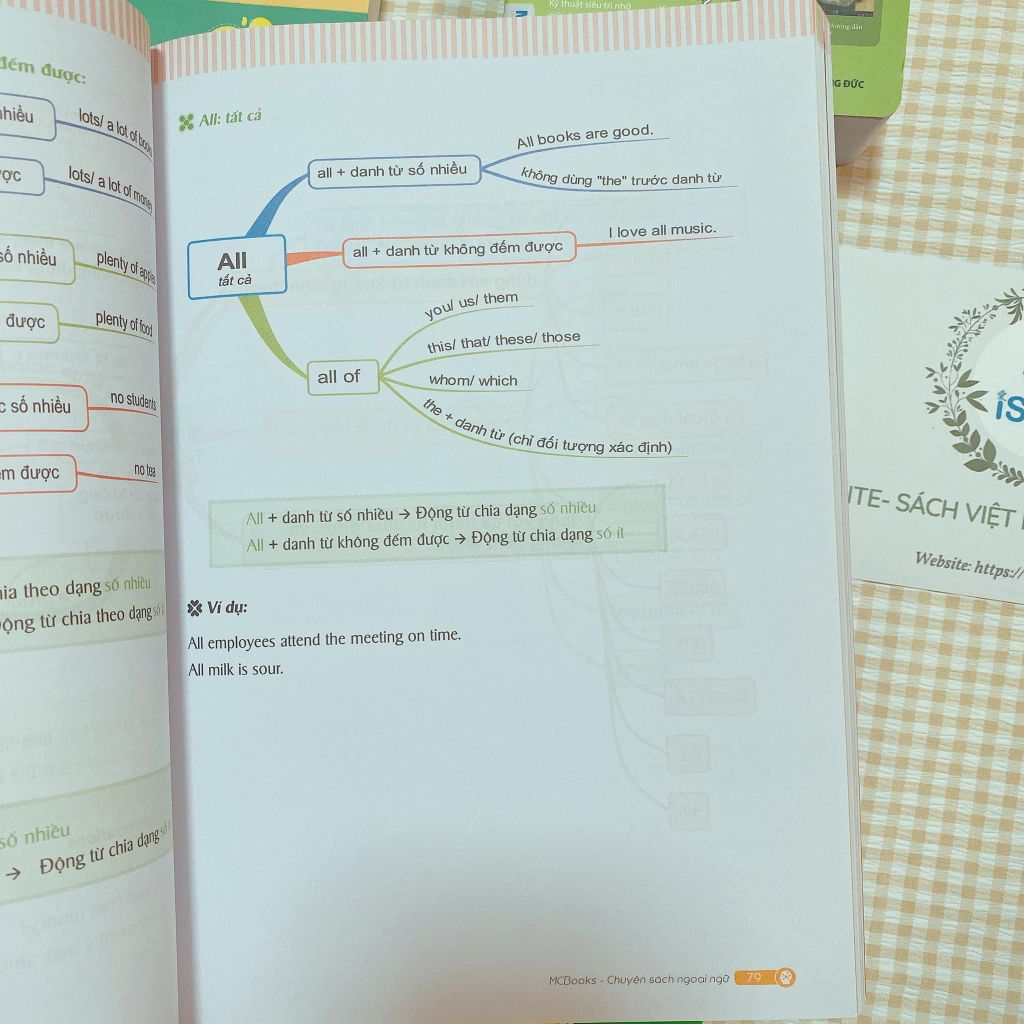 đếm được:
nhiều
lots/ a lot of books
lots/ a lot of money
số nhiều
plenty of apples
được
plenty of food
số nhiều
no students
được
no tea
chia theo dạng số nhiều
Động từ chia theo dạng số ít
số nhiều
→ Động từ chia dạng số
All: tất cả
all + danh từ số nhiều
All books are good.
không dùng "the" trước danh từ
All
tất cả
all + danh từ không đếm được
I love all music.
all of
you/ us/ them
this/ that/ these/ those
whom/ which
the + danh từ (chỉ đối tượng xác định)
All + danh từ số nhiều → Động từ chia dạng số nhiều
All + danh từ không đếm được → Động từ chia dạng số ít
Ví dụ:
All employees attend the meeting on time.
All milk is sour.
MCBooks - Chuyên sách ngoại ngữ 79
Kỹ thuật siêu trí nhớ
hướng dẫn
G ĐỨC
iS
ITE- SÁCH VIỆT
Website: https://